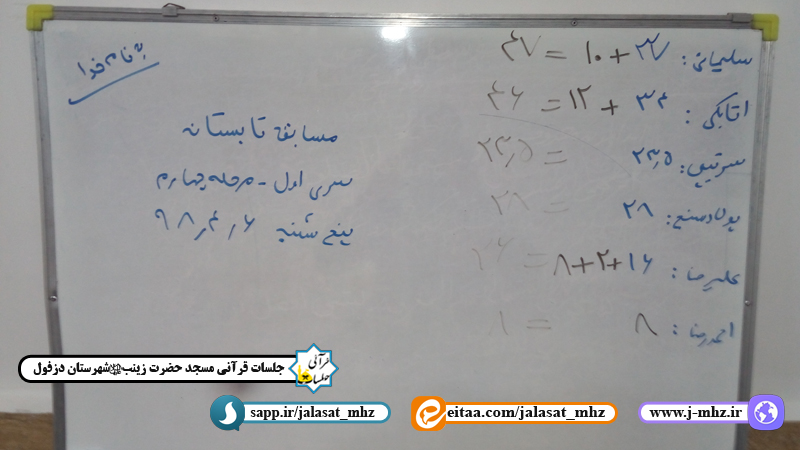 به نام خدا
مسابقه تابستانه
سری اول - مرحله چهارم
پنج شنبه ۹۸٫۴٫۶
سلیمانی: ۳۷ + ۱۰ = ۴۷
اتابکی: ۳۴ + ۱۲ = ۴۶
۲۳٫۵ = ۲۳٫۵
پولادصنع: ۲۸ =
علیرضا: ۱۶ + ۲ + ۸ = ۲۶
احمدرضا: ۸ =
جلسات قرآنی مسجد حضرت زینب شهرستان دزفول
جلسات قرآنی
sapp.ir/jalasat_mhz
eitaa.com/jalasat_mhz
www.j-mhz.ir